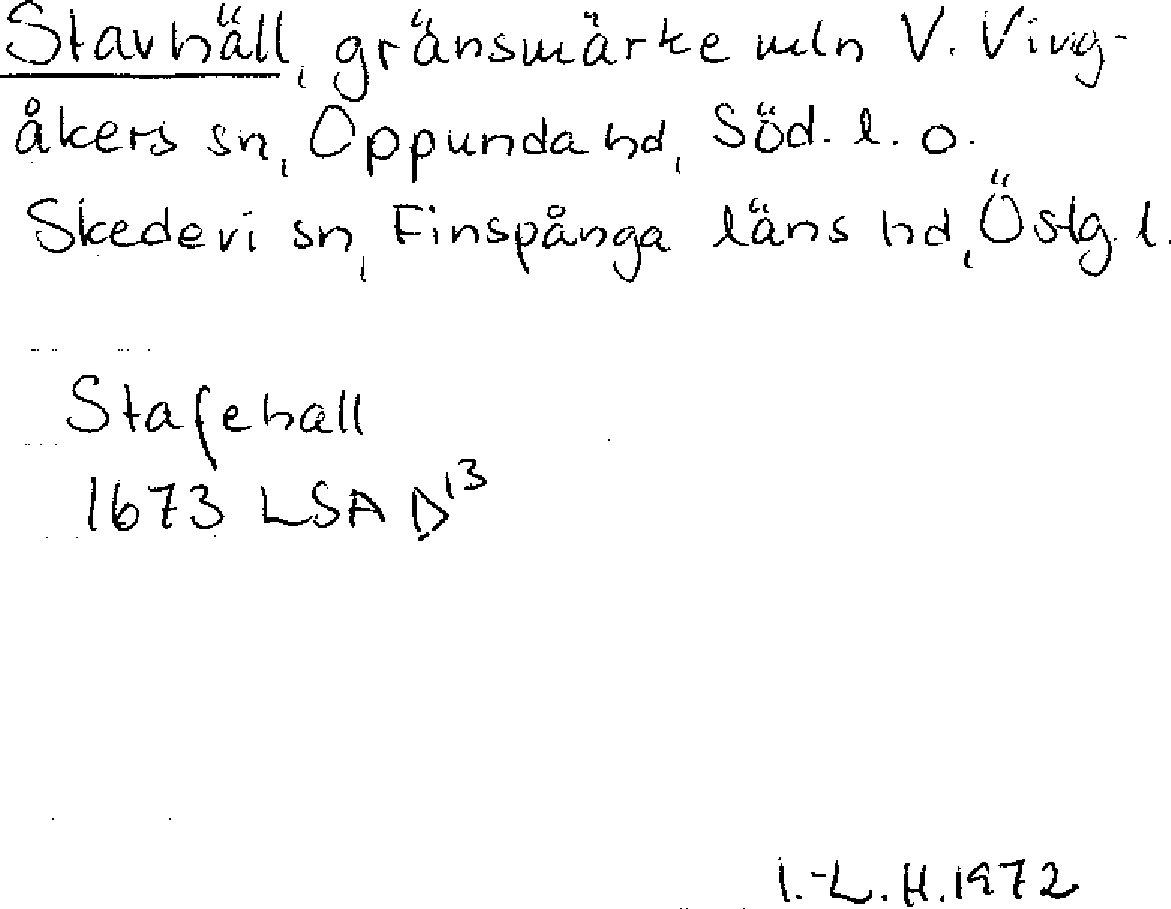 Stavhäll, gränsmärke mln V. Ving-
åkers sn, Oppunda hd, Söd. l. o.
Skedevi sn, Finspånga läns hd, Östg. l.
Stafehall
1673 LSA D13
I.-L. H. 1972